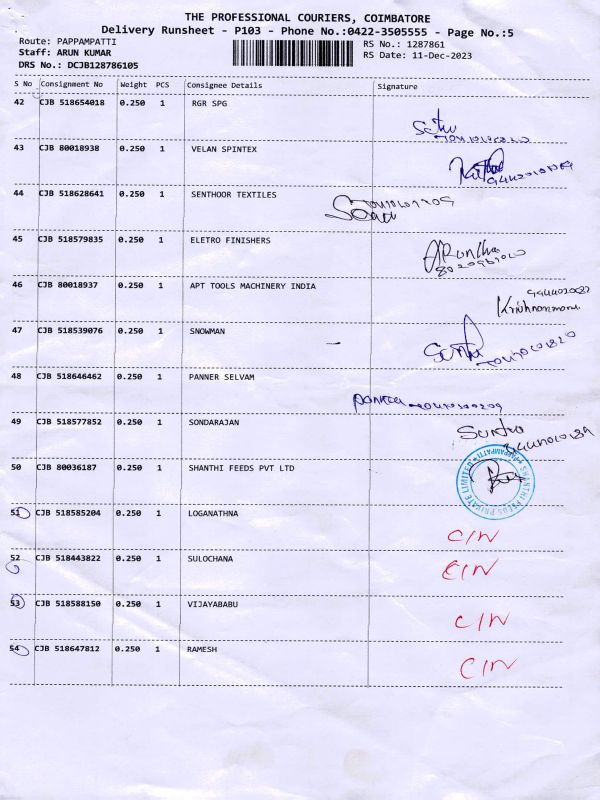 THE PROFESSIONAL COURIERS, COIMBATORE
Delivery Runsheet - P103 - Phone No.:0422-3505555 - Page No.:5
Route: PAPPAMPATTI
Staff: ARUN KUMAR
DRS No.: DCJB128786105
RS No.: 1287861
RS Date: 11-Dec-2023
S No Consignment No Weight PCS Consignee Details Signature
42 CJB 518654018 0.250 1 RGR SPG
43 CJB 80018938 0.250 1 VELAN SPINTEX
44 CJB 518628641 0.250 1 SENTHOOR TEXTILES
45 CJB 518579835 0.250 1 ELETRO FINISHERS
46 CJB 80018937 0.250 1 APT TOOLS MACHINERY INDIA
47 CJB 518539076 0.250 1 SNOWMAN
48 CJB 518646462 0.250 1 PANNER SELVAM
49 CJB 518577852 0.250 1 SONDARAJAN
50 CJB 80036187 0.250 1 SHANTHI FEEDS PVT LTD
SHANTHI FEEDS PRIVATE LIMITED PAPPAMPATTI
51 CJB 518585204 0.250 1 LOGANATHNA C/N
52 CJB 518443822 0.250 1 SULOCHANA C/N
53 CJB 518588150 0.250 1 VIJAYABABU C/N
54 CJB 518647812 0.250 1 RAMESH C/N